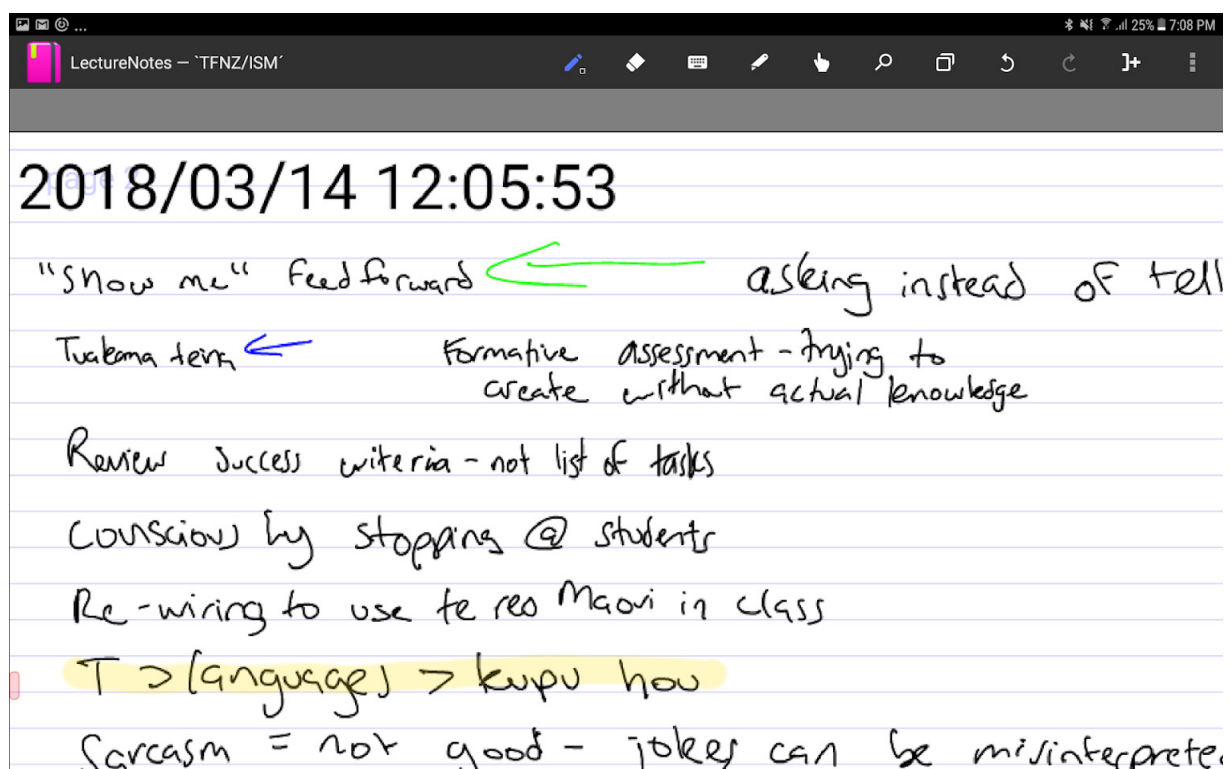 ... 25% 7:08 PM
LectureNotes – `TFNZ/ISM´
2018/03/14 12:05:53
"Show me" Feedforward asking instead of tell
Tuakana teina Formative assessment - trying to
create without actual knowledge
Review success criteria - not list of tasks
Conscious by stopping @ students
Re-wiring to use te reo Maori in class
T > languages > kupu hou
Sarcasm = not good - jokes can be misinterprete